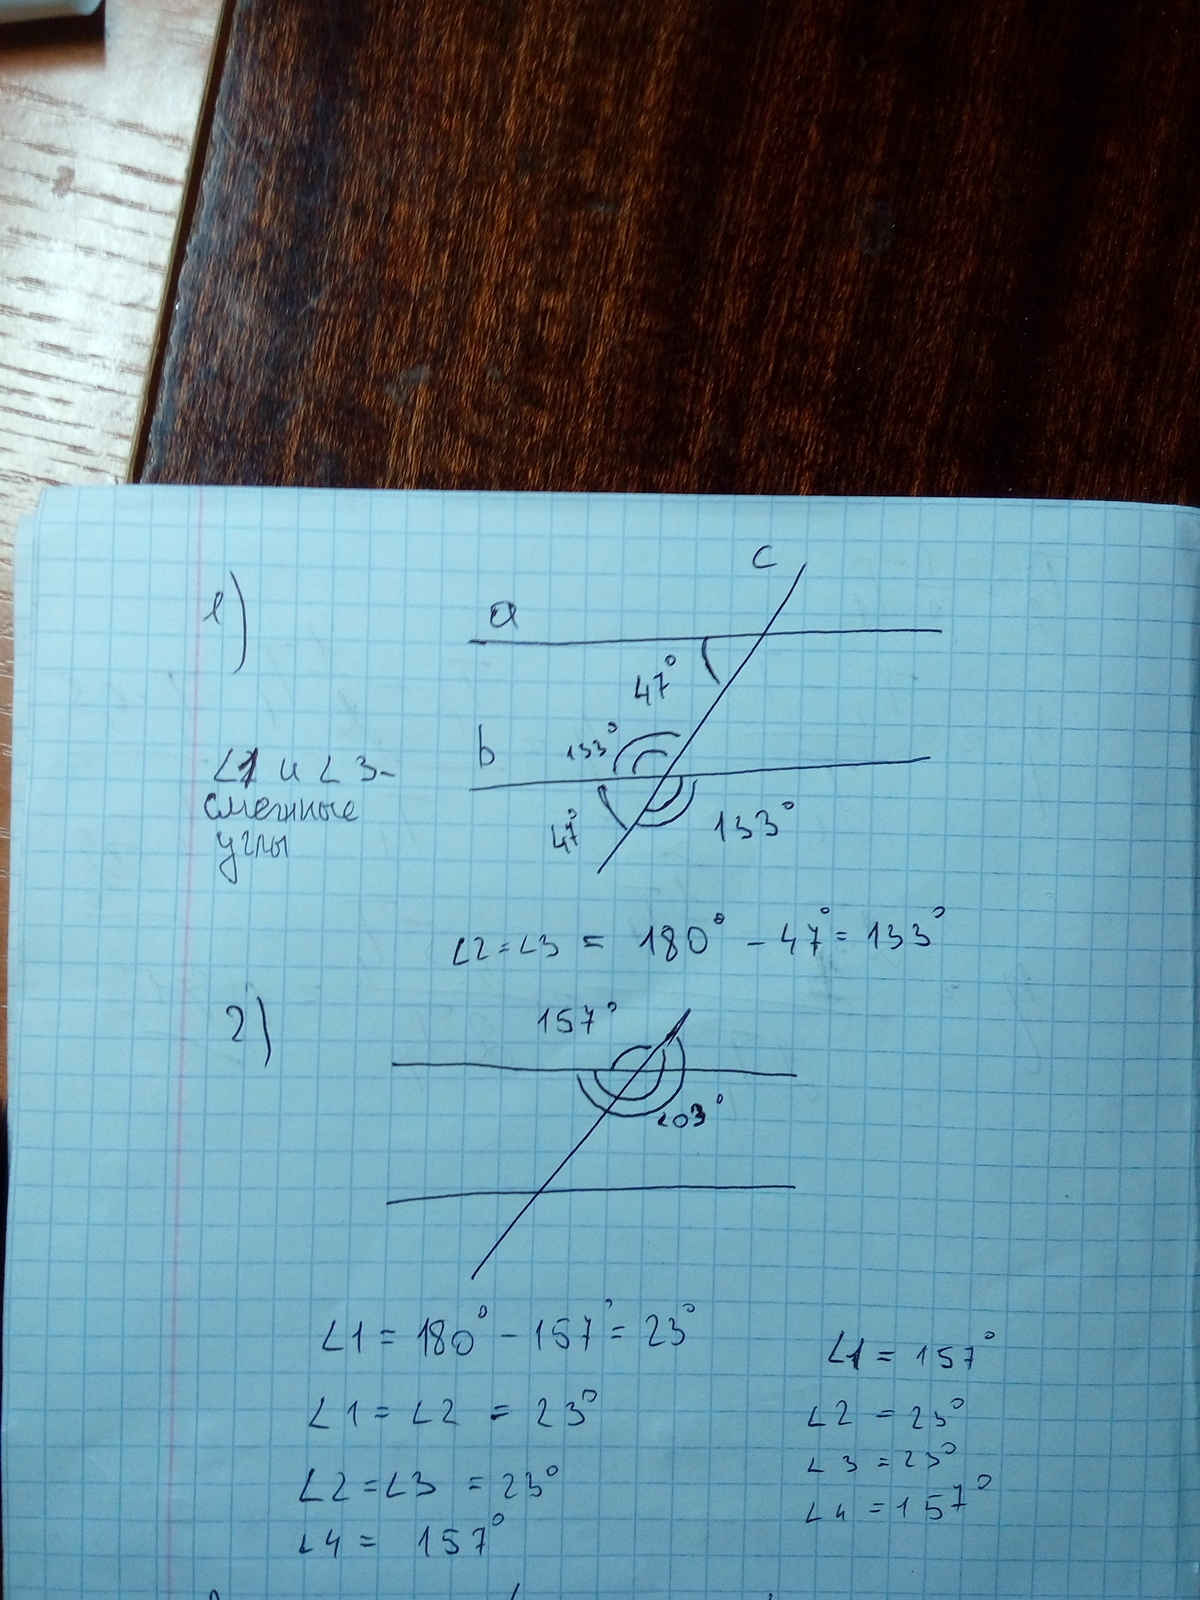 1)
c
a
47°
b
133°
∠1 и ∠3-
смежные
углы
47°
133°
∠2=∠3 = 180° - 47° = 133°
2)
157°
203°
∠1 = 180° - 157° = 23°
∠1 = ∠2 = 23°
∠2 = ∠3 = 23°
∠4 = 157°
∠1 = 157°
∠2 = 23°
∠3 = 23°
∠4 = 157°